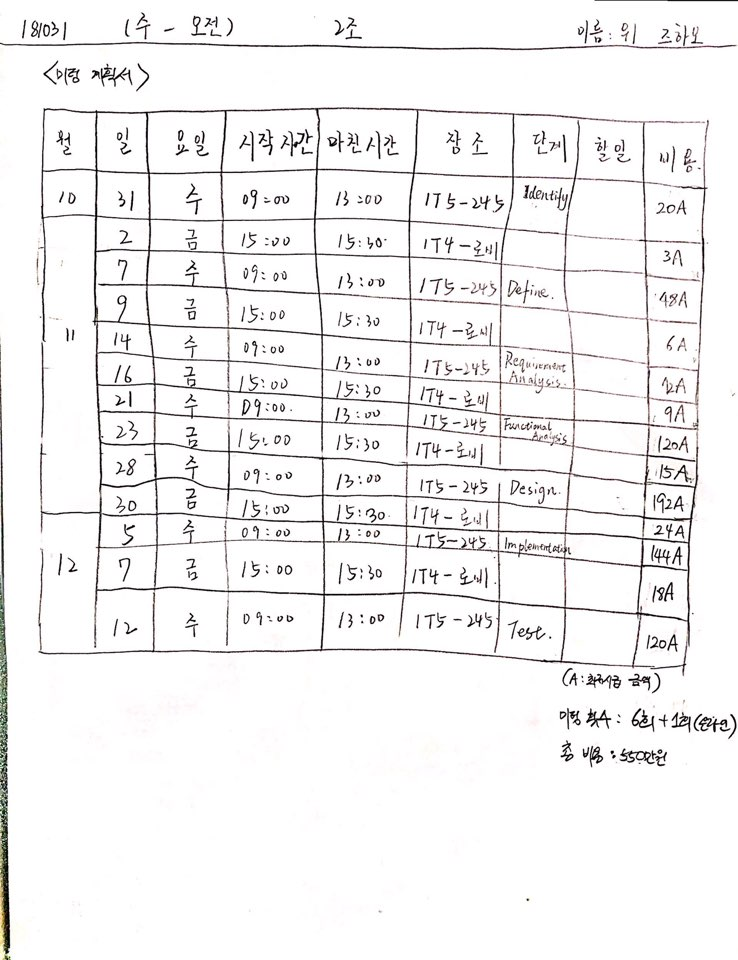 181031 (주 - 오전) 2조 이름: 위 즈하오
<미팅 계획서>
월 일 요일 시작시간 마친시간 장조 단계 할일 비용
10 31 주 09:00 13:00 IT5-245 Identify 20A
11 2 금 15:00 15:30 IT4-로비 3A
7 주 09:00 13:00 IT5-245 Define. 48A
9 금 15:00 15:30 IT4-로비 6A
14 주 09:00 13:00 IT5-245 Requirement Analysis. 72A
16 금 15:00 15:30 IT4-로비 9A
21 주 09:00 13:00 IT5-245 Functional Analysis 120A
23 금 15:00 15:30 IT4-로비 15A
28 주 09:00 13:00 IT5-245 Design. 192A
30 금 15:00 15:30 IT4-로비 24A
12 5 주 09:00 13:00 IT5-245 Implementation 144A
7 금 15:00 15:30 IT4-로비 18A
12 주 09:00 13:00 IT5-245 Test. 120A
(A: 금액)
미팅 : 6회 + 1회(온라인)
총 비용 : 550만원